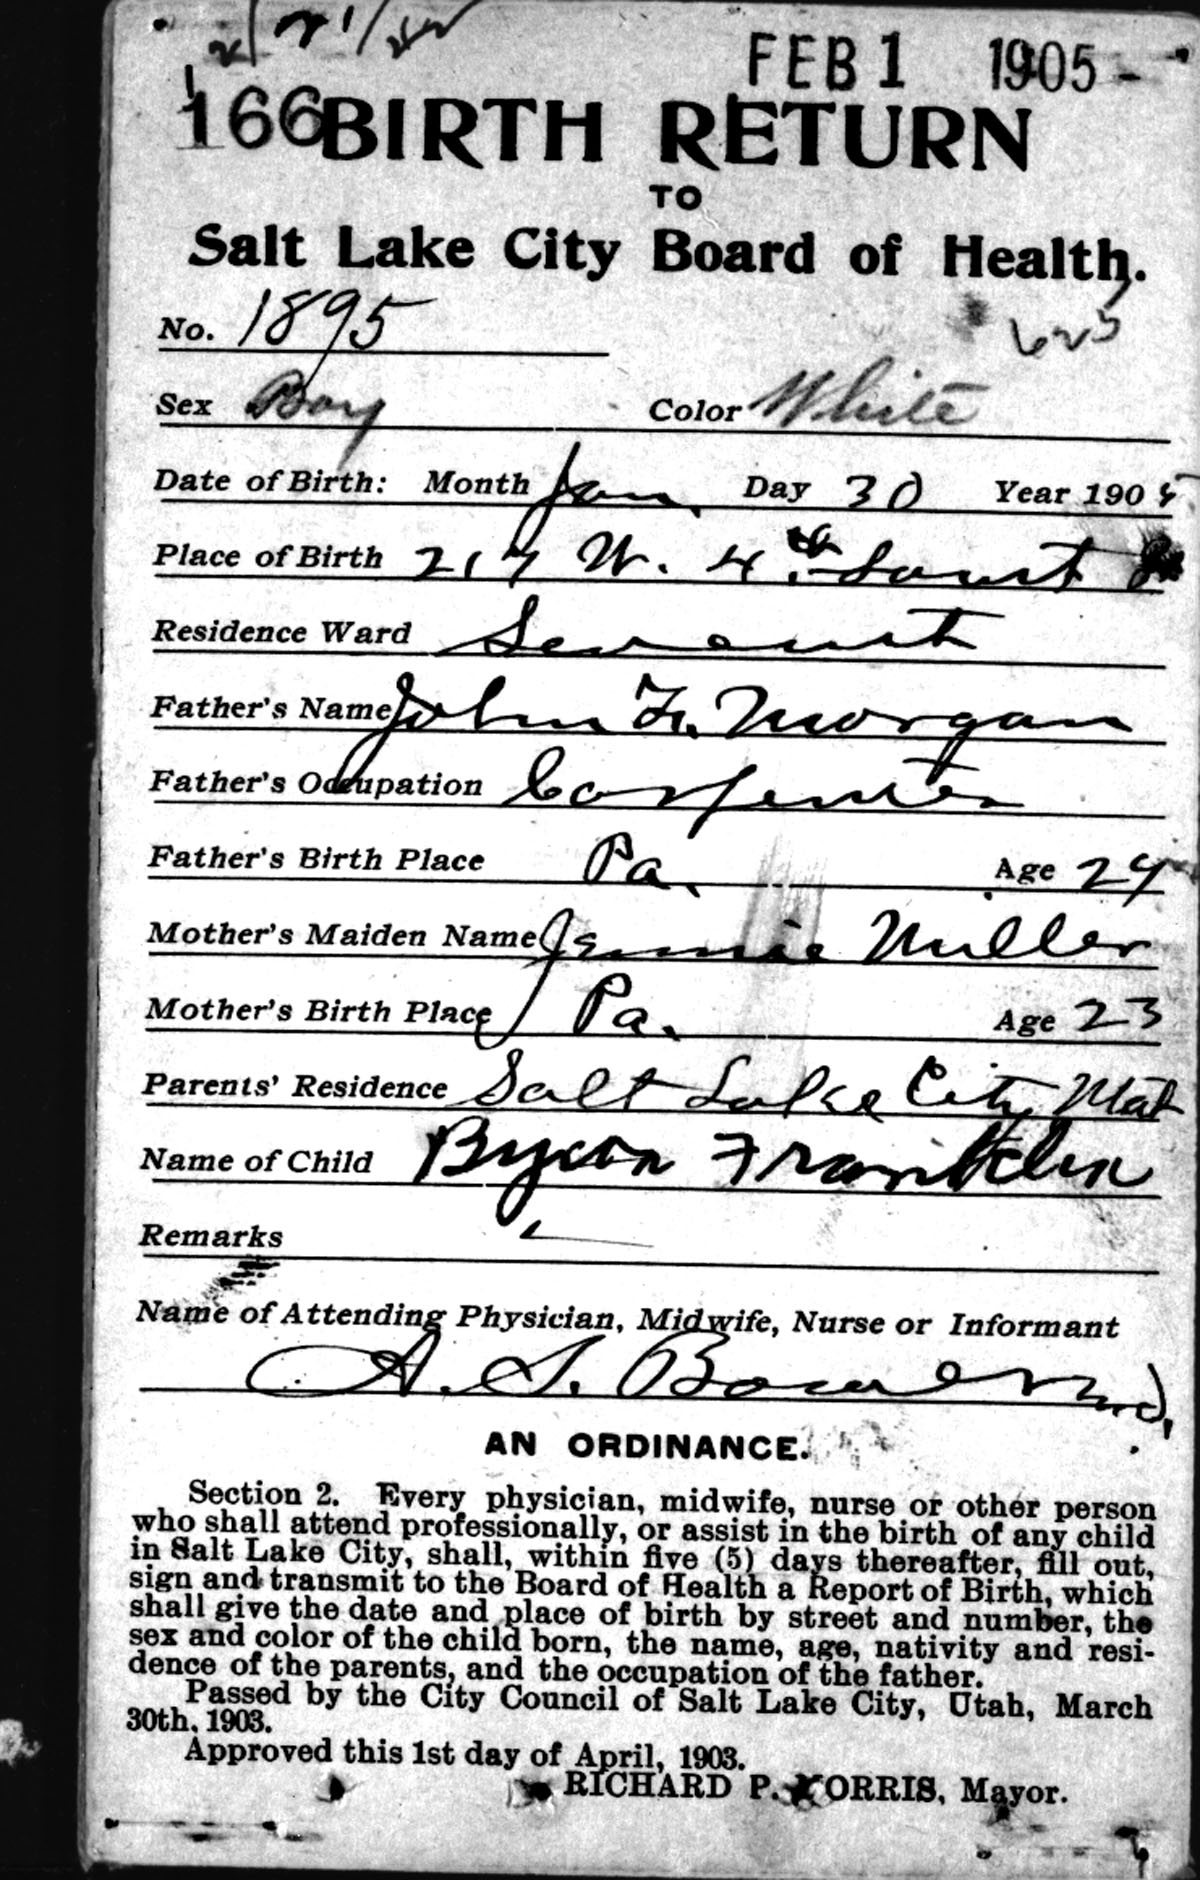 FEB 1 1905
166 BIRTH RETURN
TO
Salt Lake City Board of Health.
No. 1895
625
Sex Boy Color White
Date of Birth: Month Jan. Day 30 Year 1905
Place of Birth 217 W. 4th South
Residence Ward Seventh
Father's Name John F. Morgan
Father's Occupation Carpenter
Father's Birth Place Pa. Age 24
Mother's Maiden Name Jennie Miller
Mother's Birth Place Pa. Age 23
Parents' Residence Salt Lake City Utah
Name of Child Byron Franklin
Remarks
Name of Attending Physician, Midwife, Nurse or Informant
A. S. Bower M.D.
AN ORDINANCE.
Section 2. Every physician, midwife, nurse or other person
who shall attend professionally, or assist in the birth of any child
in Salt Lake City, shall, within five (5) days thereafter, fill out,
sign and transmit to the Board of Health a Report of Birth, which
shall give the date and place of birth by street and number, the
sex and color of the child born, the name, age, nativity and resi-
dence of the parents, and the occupation of the father.
Passed by the City Council of Salt Lake City, Utah, March
30th, 1903.
Approved this 1st day of April, 1903.
RICHARD P. MORRIS, Mayor.